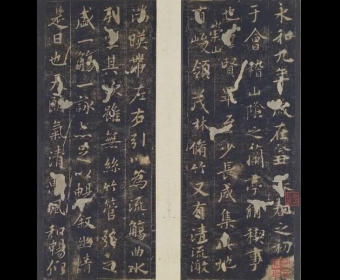 永和九年歲在丑春之初
于會稽山陰之蘭亭脩禊事
也賢至少長咸集此地
崇山
有峻領茂林脩竹又有清流激
湍暎帶左右引以為流觴曲水
列其次雖無絲竹管弦之
盛一觴一詠亦足以暢敘幽情
是日也天氣清惠風和暢仰